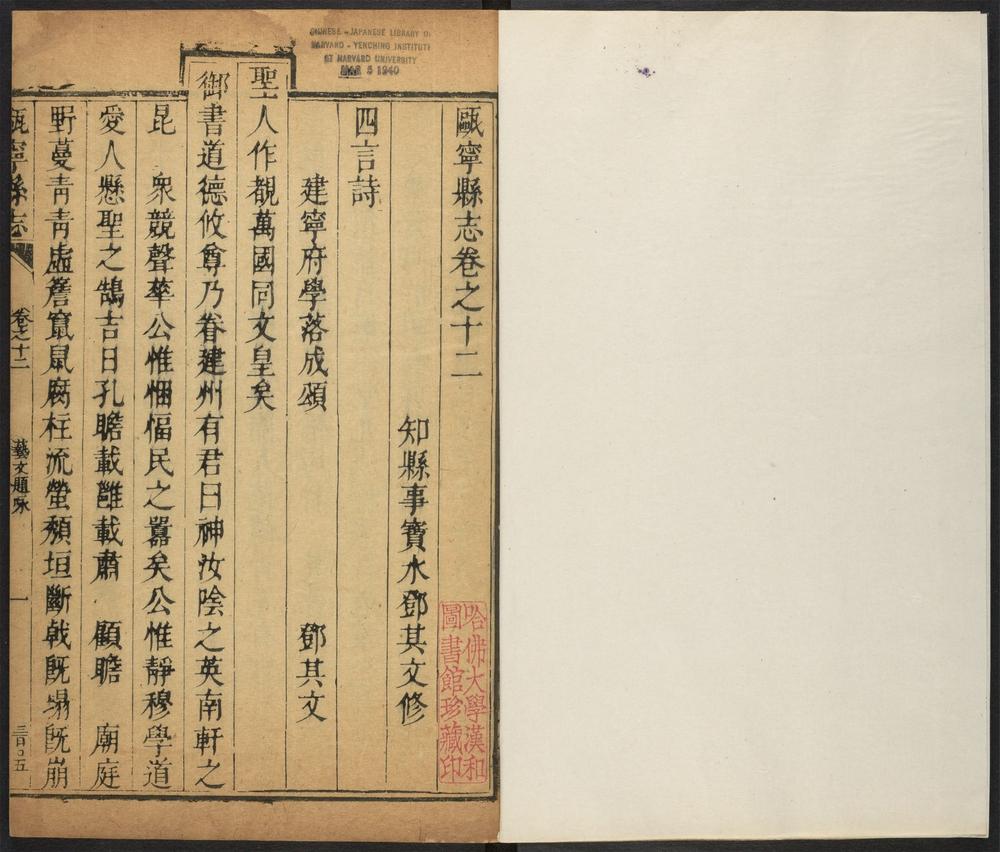 CHINESE - JAPANESE LIBRARY O
HARVARD - YENCHING INSTITUTE
AT HARVARD UNIVERSITY
MAR 5 1940
甌寧縣志卷之十二
知縣事寶水鄧其文修
哈佛大學漢和
圖書館珍藏印
四言詩
建寧府學落成頌 鄧其文
聖人作覩萬國同文皇矣
御書道德攸尊乃眷建州有君曰神汝陰之英南軒之
昆 衆競聲華公惟悃愊民之囂矣公惟靜穆學道
愛人懸聖之鵠吉日孔瞻載雝載肅 顧瞻 廟庭
野蔓靑靑虛簷竄鼠腐柱流螢頹垣斷戟旣塌旣崩
甌寧縣志 卷之十二 藝文題咏 一